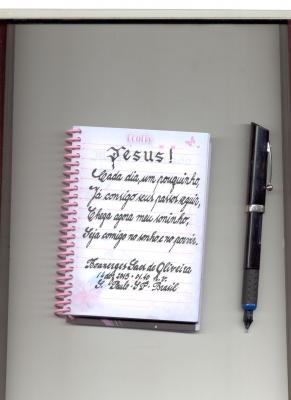 Jesus!
Cada dia, um pouquinho,
Já consigo seus passos seguir,
Chega agora meu soninho,
Seja comigo no sonho e no porvir.
de Oliveira
2013 - 01:40
S. Paulo - SP - Brasil